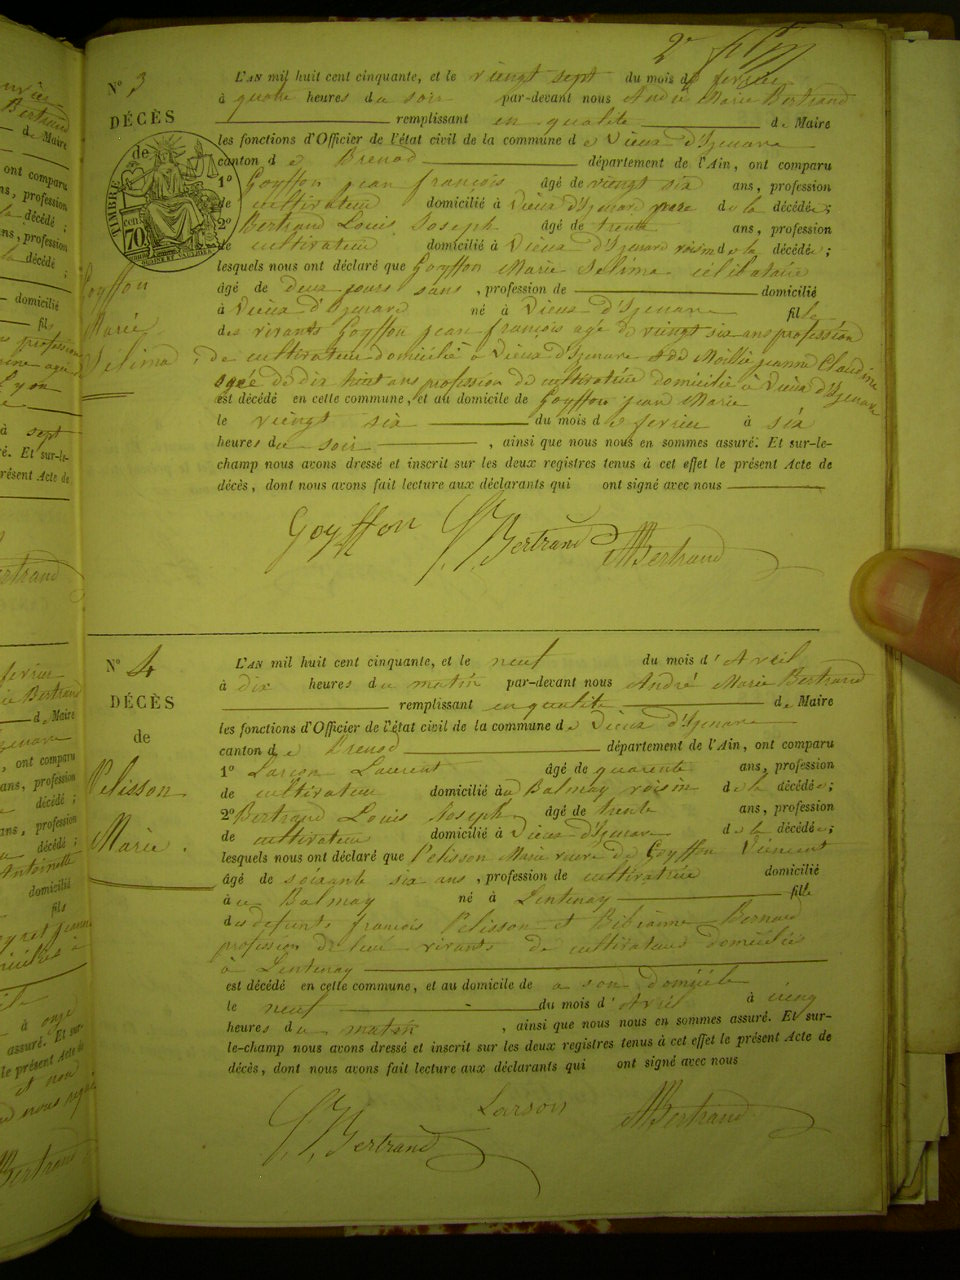 2e
N° 3
DÉCÈS
de
TIMBRE
70 cen
Goyffon
Marie
Selima
L'AN mil huit cent cinquante, et le viengt sept du mois de fevrier
à quatre heures du soir par-devant nous André Marie Bertrand
remplissant en qualité de Maire
les fonctions d'Officier de l'état civil de la commune de Vieux d'Izenave
canton de Brenod département de l'Ain, ont comparu
1° Goyffon jean françois âgé de viengt six ans, profession
de cultivateur domicilié à Vieux d'Izenave père de la décédée;
2° Bertrand Louis Joseph âgé de trente ans, profession
de cultivateur domicilié à Vieux d'Izenave voisin de la décédée;
lesquels nous ont déclaré que Goyffon Marie Selima célibataire
âgé de deux jours sans, profession de domicilié
à Vieux d'Izenave né à Vieux d'Izenave fille
des vivants Goyffon jean françois age de viengt six ans profession
de cultivateur domicilié a Vieux d'Izenave et de Moillie jeanne Claudine
agée de dix huit ans profession de cultivatrice domicilié a Vieux d'Izenave
est décédé en cette commune, et au domicile de Goyffon jean Marie
le viengt six du mois de fevrier à six
heures du soir, ainsi que nous nous en sommes assuré. Et sur-le-
champ nous avons dressé et inscrit sur les deux registres tenus à cet effet le présent Acte de
décès, dont nous avons fait lecture aux déclarants qui ont signé avec nous
Goyffon L. J. Bertrand AMBertrand
N° 4
DÉCÈS
de
Pelisson
Marie.
L'AN mil huit cent cinquante, et le neuf du mois d'Avril
à dix heures du matin par-devant nous André Marie Bertrand
remplissant en qualité de Maire
les fonctions d'Officier de l'état civil de la commune de Vieux d'Izenave
canton de Brenod département de l'Ain, ont comparu
1° Larson Laurent âgé de quarente ans, profession
de cultivateur domicilié au Balmay voisin de la décédée;
2° Bertrand Louis Joseph âgé de trente ans, profession
de cultivateur domicilié à Vieux d'Izenave de la décédée;
lesquels nous ont déclaré que Pelisson Marie veuve de Goyffon Vincent
âgé de soixante six ans, profession de cultivatrice domicilié
à au Balmay né à Lentenay fille
des defunts françois Pelisson et Bibianne Bernard
profession de leur vivants de cultivateurs domiciliés
à Lentenay
est décédé en cette commune, et au domicile de a son domicile
le neuf du mois d'Avril à cinq
heures du matin, ainsi que nous nous en sommes assuré. Et sur-
le-champ nous avons dressé et inscrit sur les deux registres tenus à cet effet le présent Acte de
décès, dont nous avons fait lecture aux déclarants qui ont signé avec nous
L. J. Bertrand Larson AMBertrand